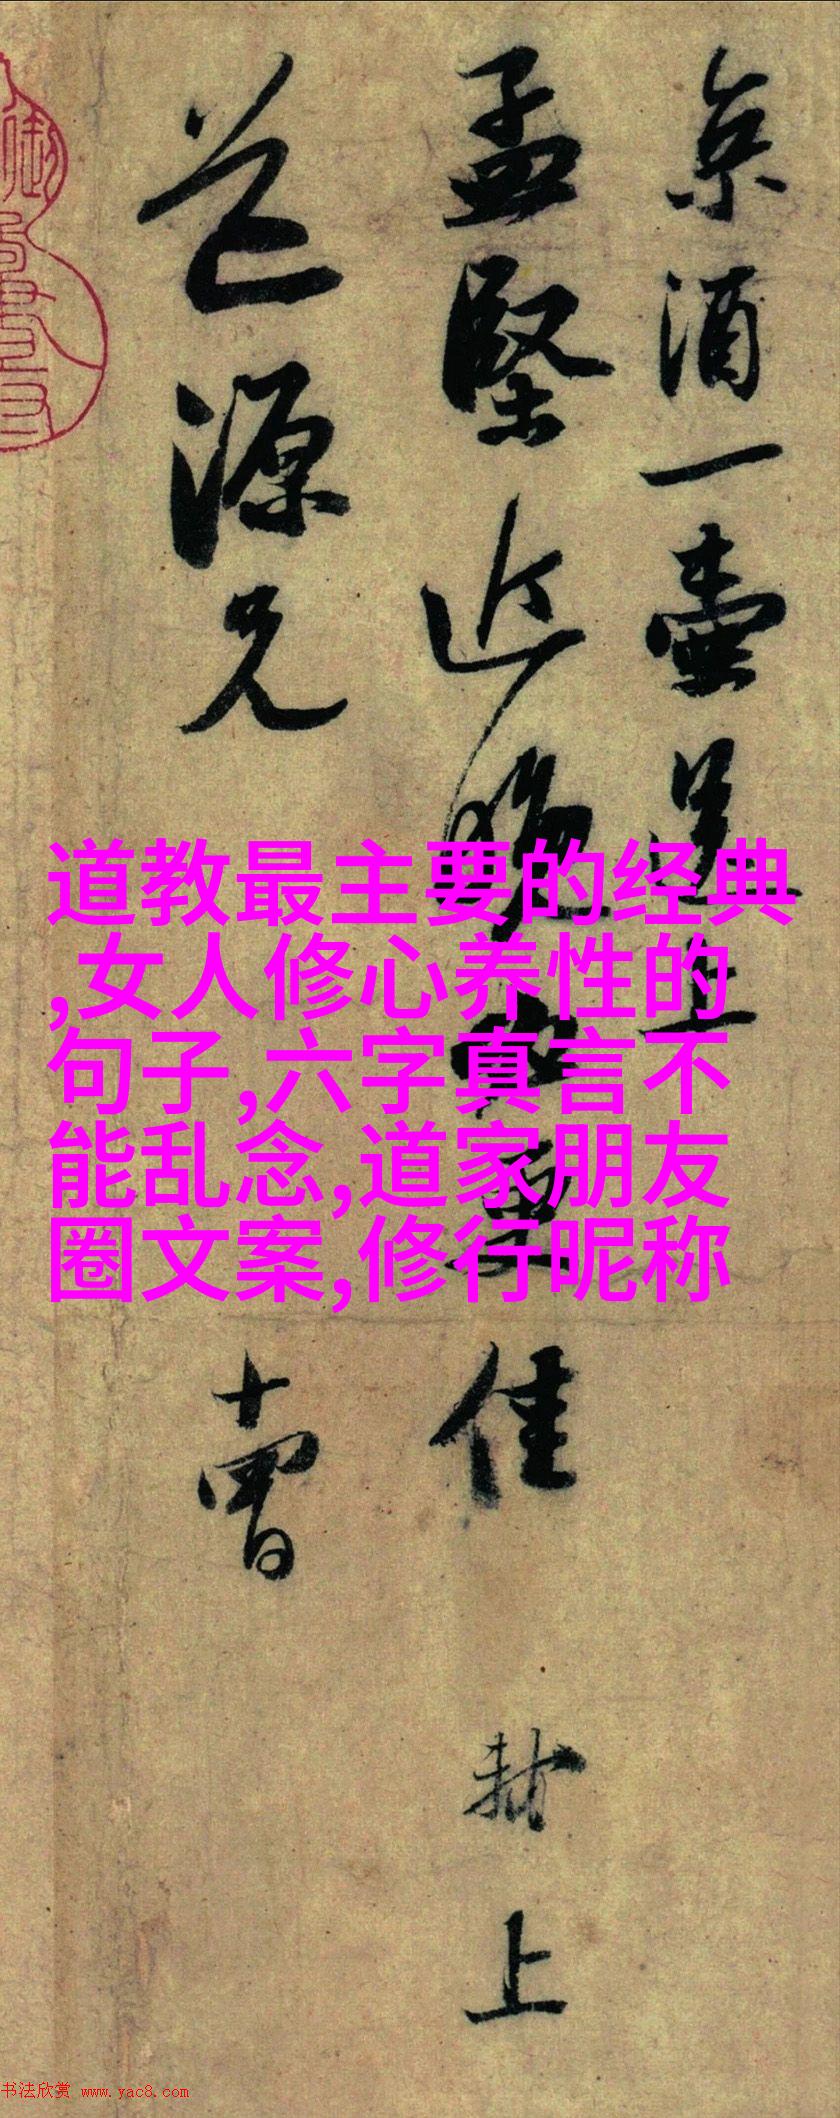 京酒一壺送上
孟堅近晚必更佳
道源兄
十曹
黻上
道教最主要的经典
,女人修心养性的
句子,六字真言不
能乱念,道家朋友
圈文案,修行昵称
书法欣赏 www.yac8.com